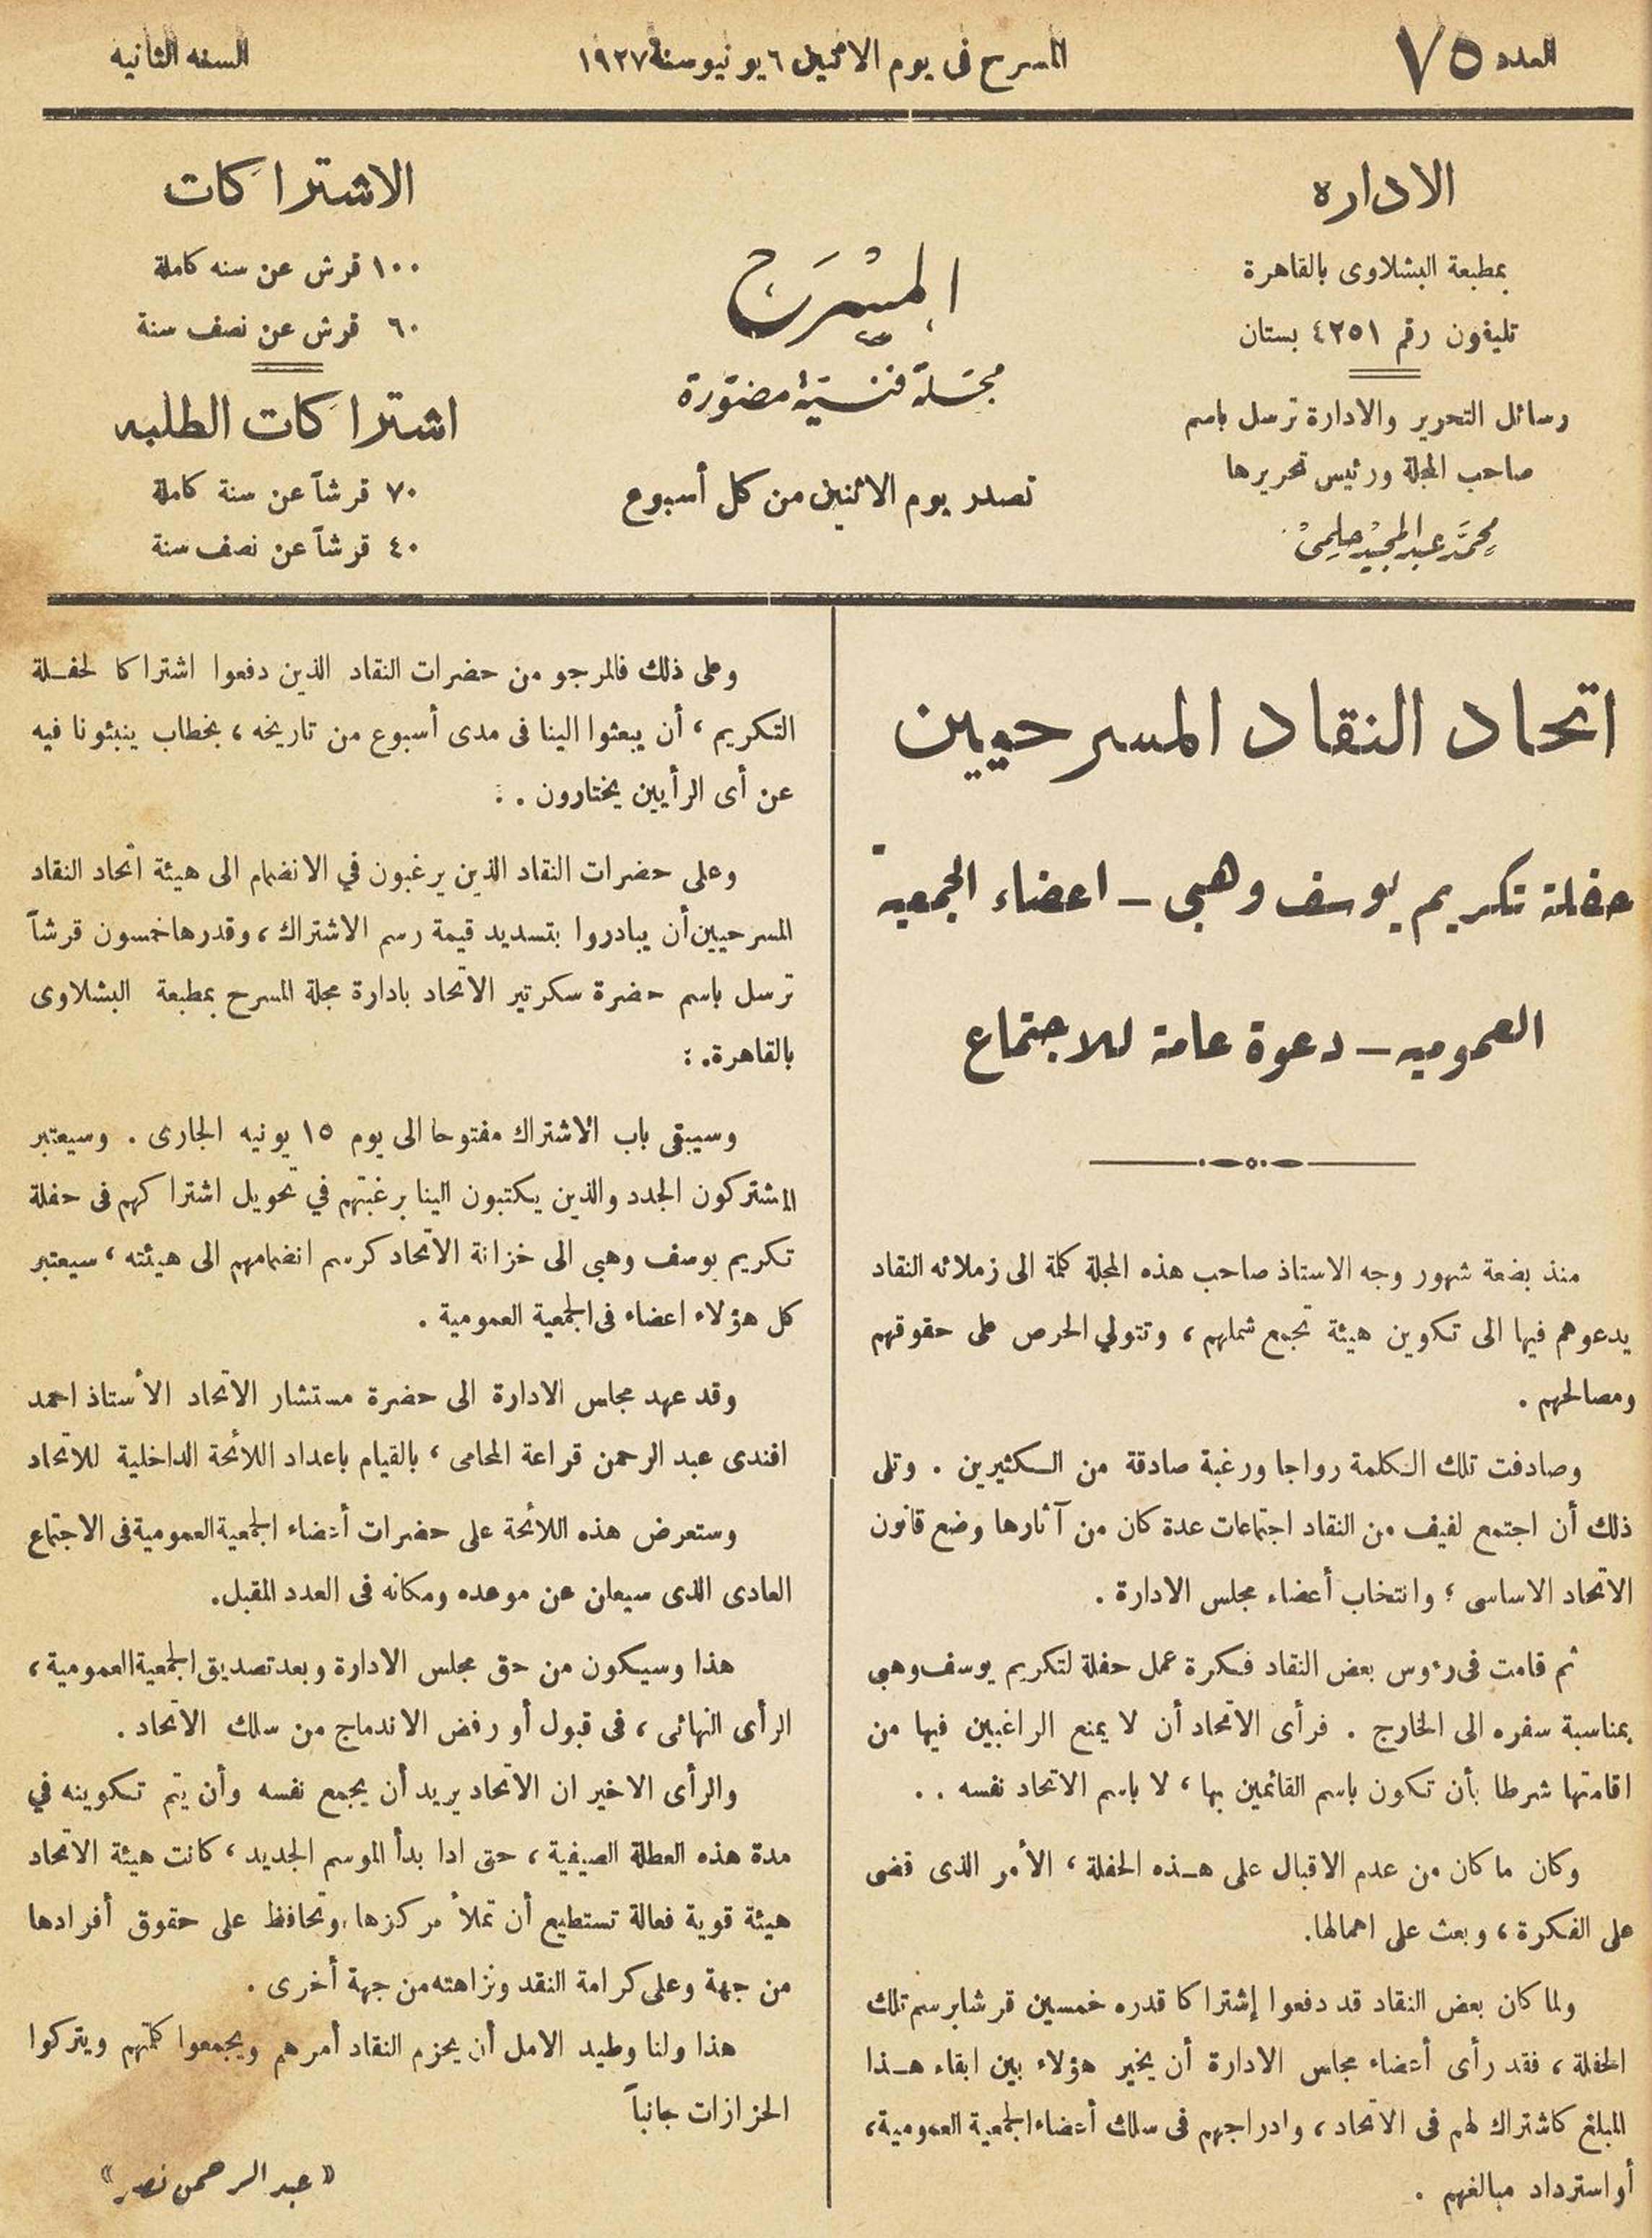 العدد ٧٥
المسرح فى يوم الاثنين ٦ يونيو سنة ١٩٢٧
السنه الثانيه
الاداره
بمطبعة البشلاوى بالقاهرة
تليفون رقم ٤٢٥١ بستان
رسائل التحرير والادارة ترسل باسم
صاحب المجلة ورئيس تحريرها
محمد عبد المجيد حلمى
المسرح
مجلة فنية مصورة
تصدر يوم الاثنين من كل أسبوع
الاشتراكات
١٠٠ قرش عن سنه كاملة
٦٠ قرش عن نصف سنة
اشتراكات الطلبه
٧٠ قرشاً عن سنة كاملة
٤٠ قرشاً عن نصف سنة
اتحاد النقاد المسرحيين
حفلة تكريم يوسف وهبى – اعضاء الجمعية
العموميه – دعوة عامة للاجتماع
منذ بضعة شهور وجه الاستاذ صاحب هذه المجلة كلمة الى زملائه النقاد
يدعوهم فيها الى تكوين هيئة تجمع شملهم ، وتتولي الحرص على حقوقهم
ومصالحهم .
وصادفت تلك الكلمة رواجا ورغبة صادقة من الكثيرين . وتلى
ذلك أن اجتمع لفيف من النقاد اجتماعات عدة كان من آثارها وضع قانون
الاتحاد الاساسى ؛ وانتخاب أعضاء مجلس الادارة .
ثم قامت فى رءوس بعض النقاد فكرة عمل حفلة لتكريم يوسف وهبى
بمناسبة سفره الى الخارج . فرأى الاتحاد أن لا يمنع الراغبين فيها من
اقامتها شرطا بأن تكون باسم القائمين بها ، لا باسم الاتحاد نفسه . .
وكان ما كان من عدم الاقبال على هذه الحفلة ، الأمر الذى قضى
على الفكرة ، وبعث على اهمالها.
ولما كان بعض النقاد قد دفعوا إشتراكا قدره خمسين قرشا برسم تلك
الحفلة ، فقد رأى أعضاء مجلس الادارة أن يخير هؤلاء بين ابقاء هذا
المبلغ كاشتراك لهم فى الاتحاد ، وادراجهم فى سلك أعضاء الجمعية العمومية ،
أو استرداد مبالغهم .
وعلى ذلك فالمرجو من حضرات النقاد الذين دفعوا اشتراكا لحفلة
التكريم ، أن يبعثوا الينا فى مدى أسبوع من تاريخه ، بخطاب ينبئونا فيه
عن أى الرأيين يختارون . :
وعلى حضرات النقاد الذين يرغبون في الانضمام الى هيئة اتحاد النقاد
المسرحيين أن يبادروا بتسديد قيمة رسم الاشتراك ، وقدرها خمسون قرشاً
ترسل باسم حضرة سكرتير الاتحاد بادارة مجلة المسرح بمطبعة البشلاوى
بالقاهرة. :
وسيبقى باب الاشتراك مفتوحا الى يوم ١٥ يونيه الجارى . وسيعتبر
المشتركون الجدد والذين يكتبون الينا برغبتهم في تحويل اشتراكهم فى حفلة
تكريم يوسف وهبى الى خزانة الاتحاد كرسم انضمامهم الى هيئته ، سيعتبر
كل هؤلاء اعضاء فى الجمعية العمومية .
وقد عهد مجلس الادارة الى حضرة مستشار الاتحاد الأستاذ احمد
افندى عبد الرحمن قراعة المحامى ، بالقيام باعداد اللائحة الداخلية للاتحاد
وستعرض هذه اللائحة على حضرات أعضاء الجمعية العمومية فى الاجتماع
العادى الذى سيعلن عن موعده ومكانه فى العدد المقبل.
هذا وسيكون من حق مجلس الادارة وبعد تصديق الجمعية العمومية ،
الرأى النهائى ، فى قبول أو رفض الاندماج من سلك الاتحاد .
والرأى الاخير ان الاتحاد يريد أن يجمع نفسه وأن يتم تكوينه في
مدة هذه العطلة الصيفية ، حتى اذا بدأ الموسم الجديد ، كانت هيئة الاتحاد
هيئة قوية فعالة تستطيع أن تملأ مركزها ، وتحافظ على حقوق أفرادها
من جهة وعلى كرامة النقد ونزاهته من جهة أخرى .
هذا ولنا وطيد الامل أن يحزم النقاد أمرهم ويجمعوا كلمتهم ويتركوا
الحزازات جانباً
« عبد الرحمن نصر »